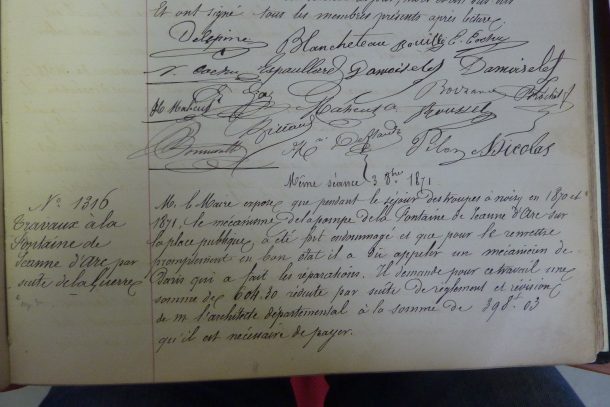 Et ont signé tous les membres présents après lecture
Delepinne Blancheteau Bouillé E. Cochu
V. Cochu Lapaullard Damoiselet Damoiselet
Maheux
Roussel
Pelou Nicolas
Même séance 3 8bre 1871
No 1316
Travaux à la
Fontaine de
Jeanne d'Arc par
suite de la Guerre
M. le Maire expose que pendant le séjour des troupes à noisy en 1870 et
1871, le mécanisme de la pompe de la Fontaine de Jeanne d'Arc sur
la place publique, a été fort endommagé et que pour le remettre
promptement en bon état il a dû appeler un mécanicien de
Paris qui a fait les réparations. Il demande pour ce travail une
somme de 604.30 réduite par suite de règlement et révision
de m. l'architecte départemental à la somme de 398f 03
qu'il est nécessaire de payer.